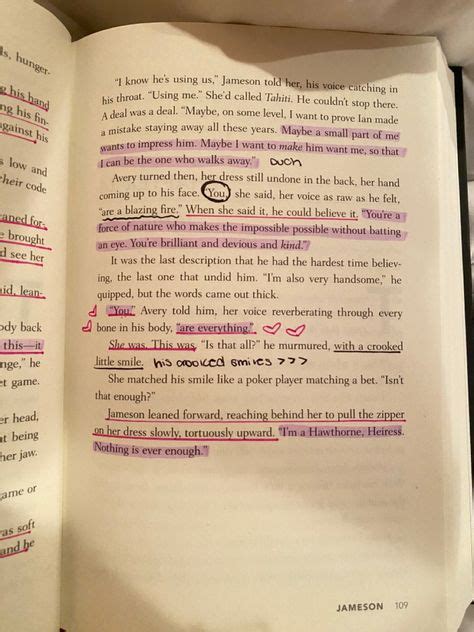 ls, hunger-
g his hand
ng his fin-
against his
s low and
their code
aned for-
e brought
d see her
id, lean-
ody back
this—it
nge," he
et game.
er head,
t being
her jaw.
ame or
as soft
and he
"I know he's using us," Jameson told her, his voice catching in
his throat. "Using me." She'd called Tahiti. He couldn't stop there.
A deal was a deal. "Maybe, on some level, I want to prove Ian made
a mistake staying away all these years. Maybe a small part of me
wants to impress him. Maybe I want to make him want me, so that
I can be the one who walks away." ouch
Avery turned then, her dress still undone in the back, her hand
coming up to his face. "You," she said, her voice as raw as he felt,
"are a blazing fire." When she said it, he could believe it. "You're a
force of nature who makes the impossible possible without batting
an eye. You're brilliant and devious and kind."
It was the last description that he had the hardest time believ-
ing, the last one that undid him. "I'm also very handsome," he
quipped, but the words came out thick.
"You," Avery told him, her voice reverberating through every
bone in his body, "are everything."
She was. This was. "Is that all?" he murmured, with a crooked
little smile. his crooked smiles >>>
She matched his smile like a poker player matching a bet. "Isn't
that enough?"
Jameson leaned forward, reaching behind her to pull the zipper
on her dress slowly, tortuously upward. "I'm a Hawthorne, Heiress.
Nothing is ever enough."
JAMESON 109